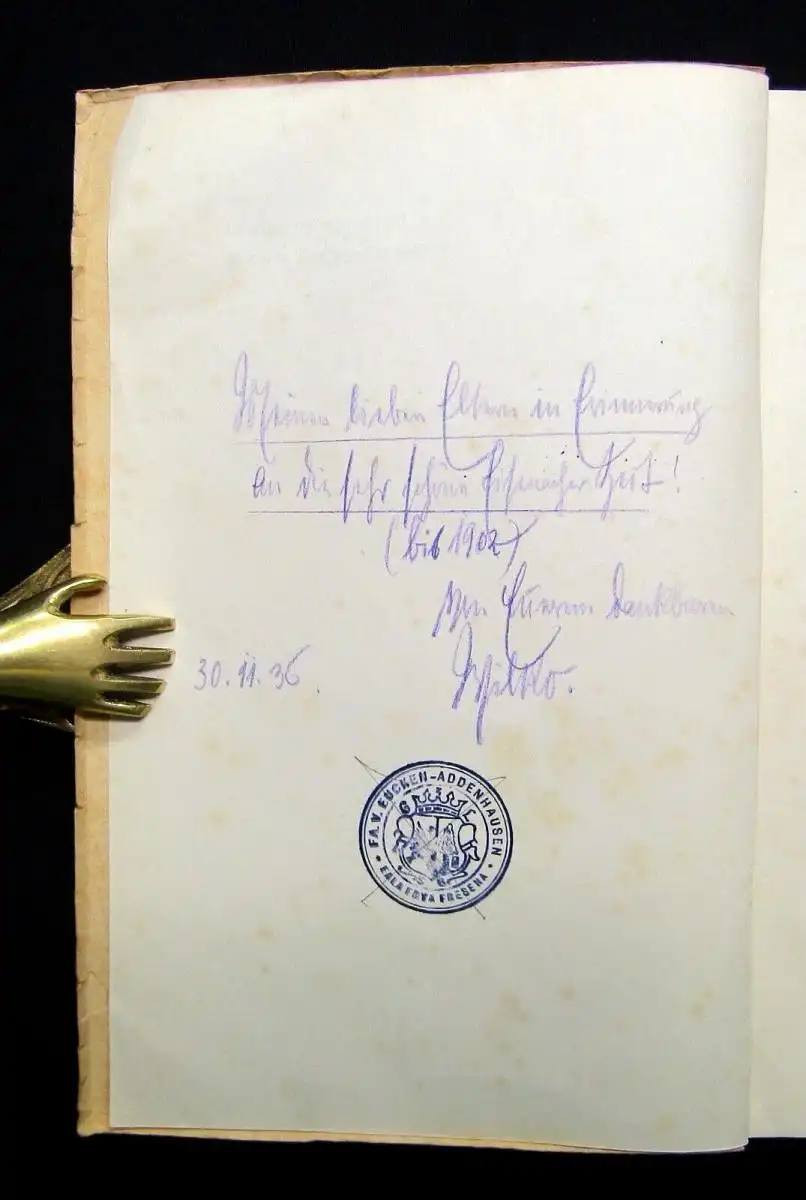 Meinen lieben Eltern in Erinnerung
an die sehr schöne Eisenacher Zeit!
(bis 1902)
von Eurem dankbaren
Wilko.
30.11.36.
FA. V. EUCKEN-ADDENHAUSEN
EALA FRYA FRESENA